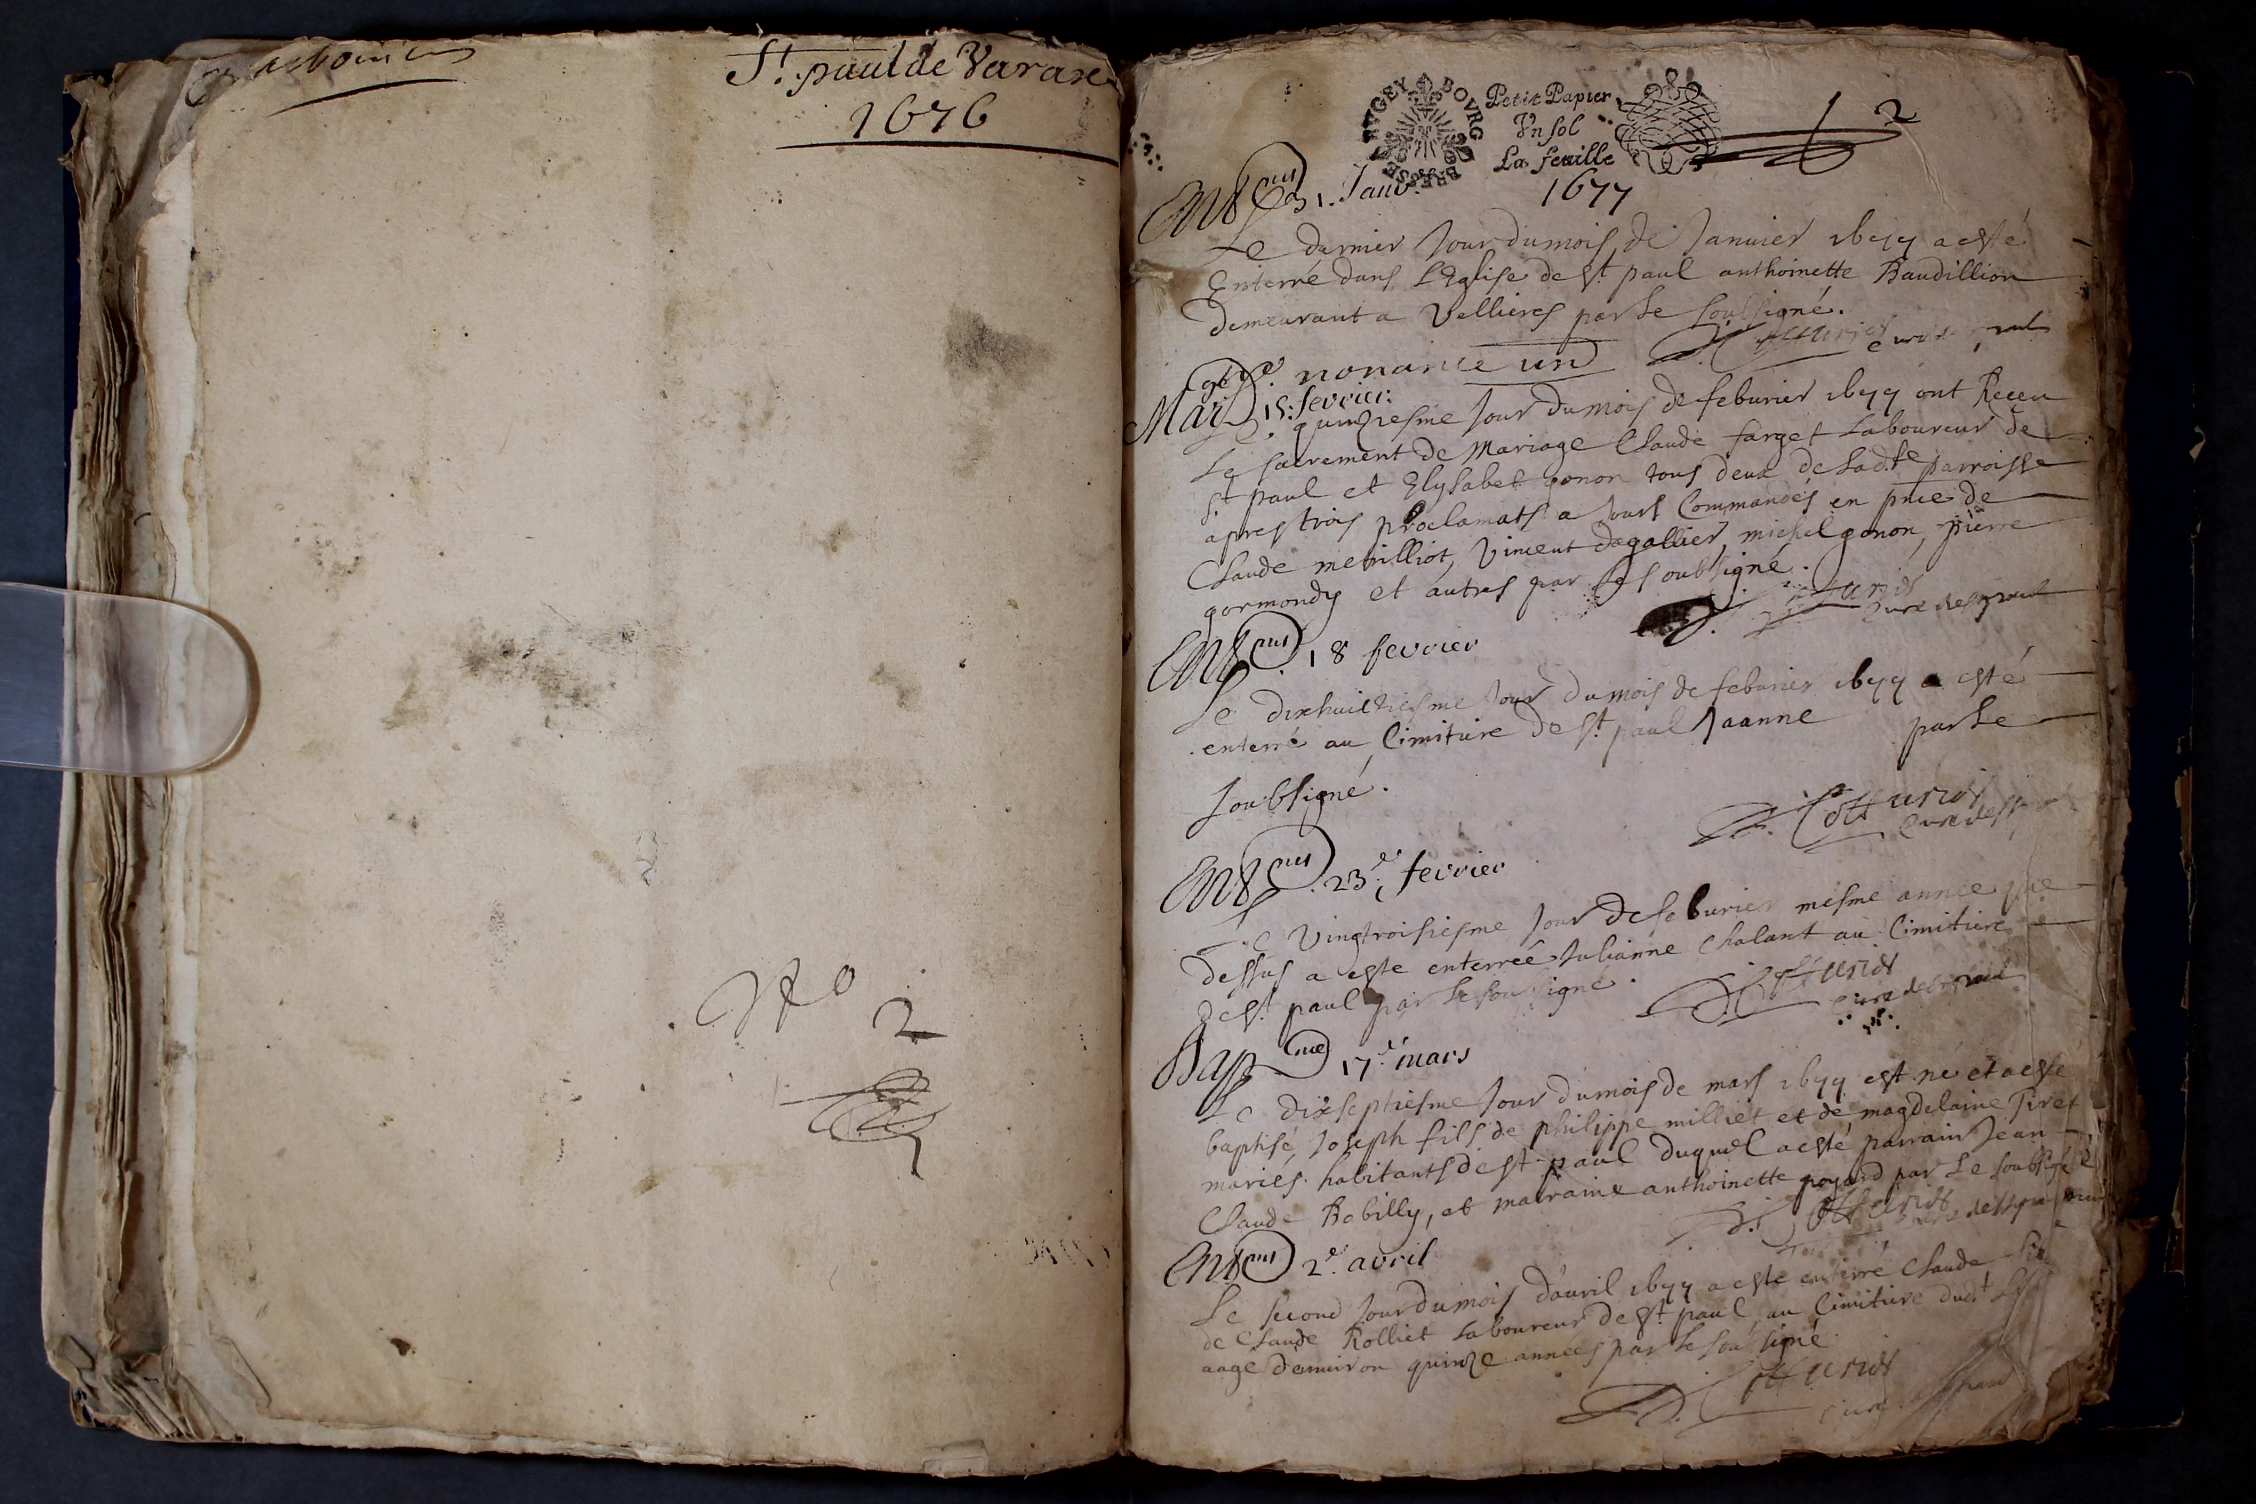 St. paul de Varax
1676
No
2
BOVRG BRESSE BVGEY
Petit Papier
Vn sol
La feuille
2
1677
Ent.^(mt) 31. Janv.
Le darnier Jour du mois de Januier 1677 a esté
Enterré dans L'Eglise de St paul anthoinette Baudillion
demeurant a Vellieres par Le soubsigné.
curé de St paul
nonante un
Mar. 15: fevrier.
Le quinziesme Jour du mois de feburier 1677 ont Receu
Le sacrement de Mariage Claude farget Laboureur de
St paul et Elysabet gonon tous deux de Lad.te parroisse
apres trois proclamats a Jours Commandés en pnce de
Claude mevilliot, Vincent dagallier, michel gonon, pierre
gormondy et autres par Le soubsigné.
curé de St paul
Ent.^(mt) 18 fevrier
Le dixhuictiesme Jour du mois de feburier 1677 a esté
enterré au Cimitiere de St paul Jaanne par Le
soubsigné.
curé de St paul
Ent.^(mt) 23.e fevrier
Le Vingtroisiesme Jour de feburier mesme annee que
dessus a este enterreé Julianne Chalant au Cimitiere
de St paul par Le soubsigné.
curé de St paul
Bap^(me) 17.e mars
Le dixseptiesme Jour du mois de mars 1677 est né et a esté
baptisé, Joseph fils de philippe milliet et de magdelaine Tiret
mariés habitants de St paul duquel a esté parrain Jean
Claude Robilly, et marraine anthoinette poyard par Le soubsigné
Ent^(mt) 2.e avril
Le second Jour du mois d'auril 1677 a este enterré Claude
de Claude Rolliet Laboureur de St paul, au Cimitiere dud.t
aage d'enuiron quinze années par Le soubsigné